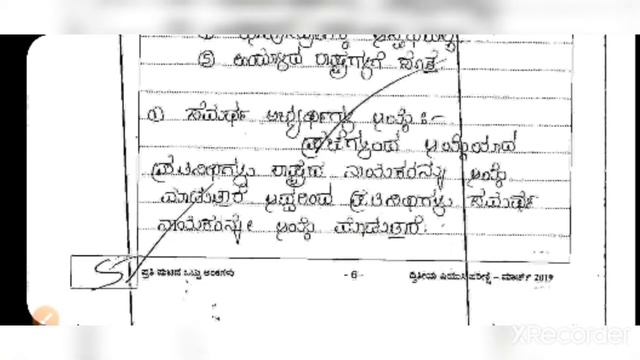 ೫) ಹಿಮ್ಮಡಿ ರಾಷ್ಟ್ರಗಳಿಗೆ ಹೊತ್ತ
೧) ಸಮರ್ಥ ಅಭ್ಯರ್ಥಿಗಳ ಆಯ್ಕೆ :-
ಪ್ರಜೆಗಳಿಂದ ಆಯ್ಕೆಯಾದ
ಪ್ರತಿನಿಧಿಗಳು ರಾಷ್ಟ್ರದ ನಾಯಕರನ್ನು ಆಯ್ಕೆ
ಮಾಡುತ್ತಾರೆ ಆದ್ದರಿಂದ ಪ್ರತಿನಿಧಿಗಳು ಸಮರ್ಥ
ನಾಯಕರನ್ನೇ ಆಯ್ಕೆ ಮಾಡುತ್ತಾರೆ.
5 ಪ್ರತಿ ಪುಟದ ಒಟ್ಟು ಅಂಕಗಳು - 6 - ದ್ವಿತೀಯ ಪಿಯುಸಿ ಪರೀಕ್ಷೆ – ಮಾರ್ಚ್ 2019
XRecorder